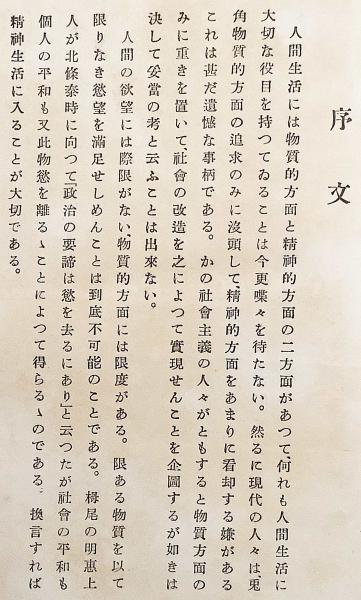 序文
人間生活には物質的方面と精神的方面の二方面があつて、何れも人間生活に
大切な役目を持つてゐることは今更喋々を待たない。然るに現代の人々は、兎
角物質的方面の追求のみに沒頭して、精神的方面をあまりに看却する嫌がある
これは甚だ遺憾な事柄である。かの社會主義の人々がともすると物質方面の
みに重きを置いて、社會の改造を之によつて實現せんことを企圖するが如きは
決して妥當の考と云ふことは出來ない。
人間の欲望には際限がない、物質的方面には限度がある。限ある物質を以て
限りなき慾望を滿足せしめんことは到底不可能のことである。栂尾の明惠上
人が北條泰時に向つて「政治の要諦は慾を去るにあり」と云つたが社會の平和も
個人の平和も又此物慾を離るゝことによつて得らるゝのである。換言すれば
精神生活に入ることが大切である。